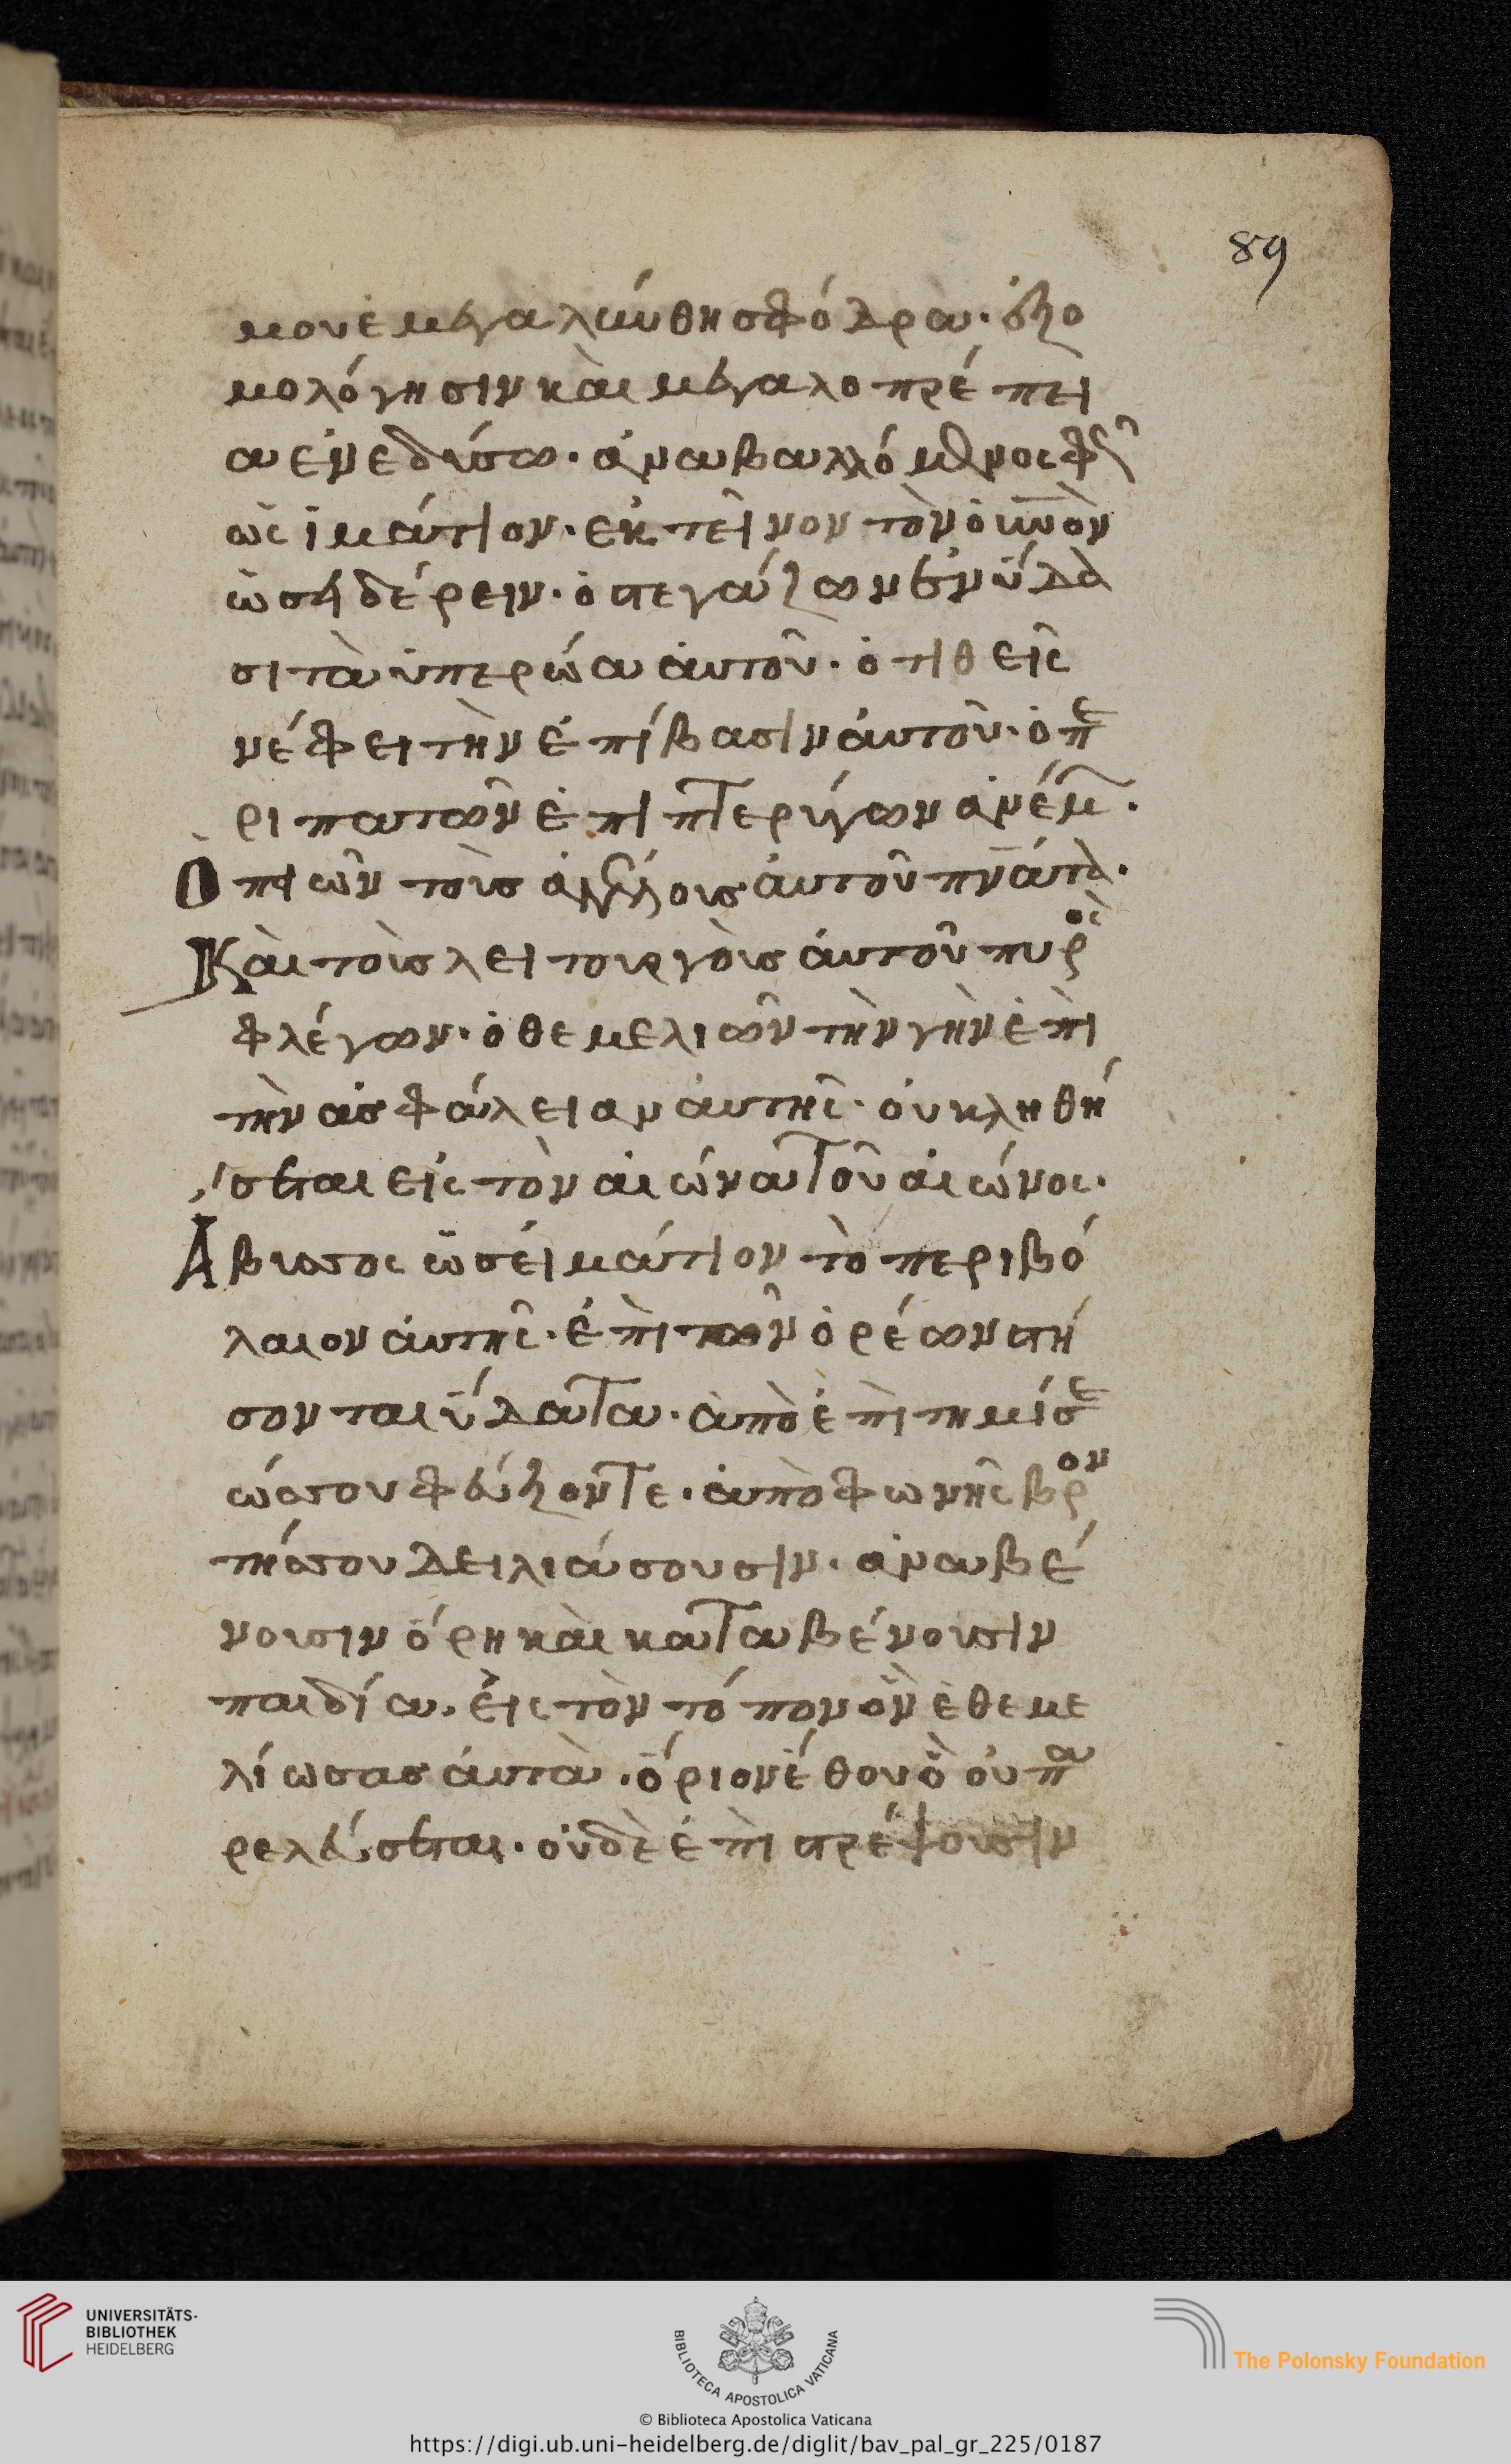 89
μου ἐμεγαλύνθη σφόδρα· ἐξο
μολόγησιν καὶ μεγαλοπρέπει
α ἐνεδύσω· ἀναβαλλόμενος φῶς
ὡς ἱμάτιον· ἐκτεῖνον τὸν οὐνὸν
ὡσὴ δέρειν· ὁ στεγάζων ἐν ὕδα
σι τὰ ὑπερώα αὐτοῦ· ὁ τιθεὶς
νέφει τὴν ἐπίβασιν αὐτοῦ· ὁ πε
ριπατῶν ἐπὶ πτερύγων ἀνέμ·
Ὁ πιῶν τοὶς ἀγγέλοις αὐτοῦ πνάτα·
Καὶ τοὶς λειτουργοὶς αὐτοῦ πυρὸς
φλέγων· ὁ θεμελιῶν τὴν γὴν ἐπὶ
τὴν ἀσφάλειαν αὐτῆς· οὐ κληθή
σεται εἰς τὸν αἰώνα τοῦ αἰώνος·
Ἄβυσσος ὡσεί μάτιον τὸ περιβό
λαιον αὐτῆς· ἐπὶ τῶν ὀρέων στή
σονται ὕδατα· ἀπὸ ἐπιτημίσε
ώς σου φεύξοντε· ἀπὸ φωνῆς βρον
τής σου δειλιάσουσιν· ἀναβέ
νουσιν ὄρη καὶ καταβένουσιν
παιδία· εἰς τὸν τόπον ὃν ἐθεμε
λίωσας αὐτὰ· ὅριον ἔθου ὃ οὐ πα
ρελεύσεται· οὐδὲ ἐπιστρέψουσιν
UNIVERSITÄTS-
BIBLIOTHEK
HEIDELBERG
BIBLIOTECA APOSTOLICA VATICANA
The Polonsky Foundation
© Biblioteca Apostolica Vaticana
https://digi.ub.uni-heidelberg.de/diglit/bav_pal_gr_225/0187